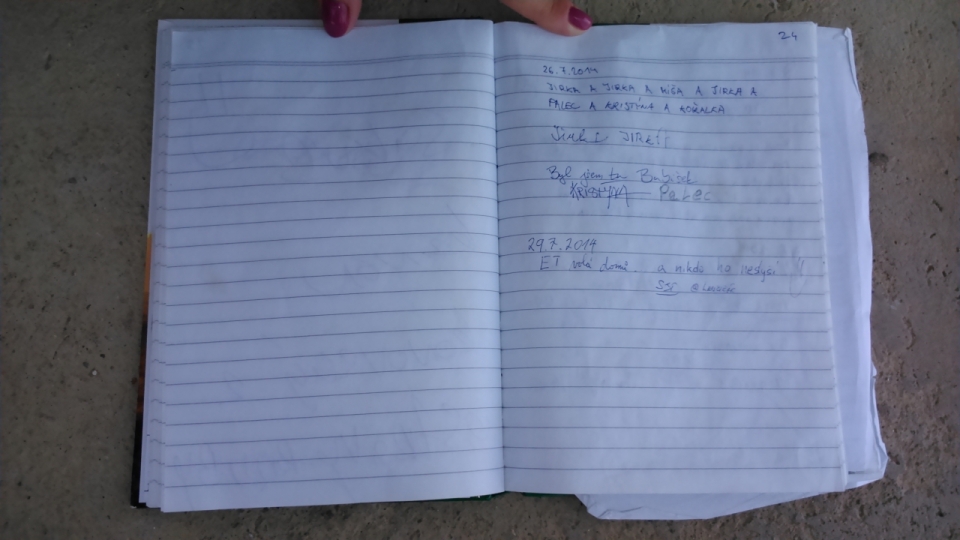 24
26.7.2014
JIRKA A JIRKA A MÍŠA A JIRKA A
PALEC A KRISTÝNA A KOŘALKA
Byl jsem tu
KRISTÝNA Palec
29.7.2014
ET volá domů. a nikdo ho neslyší